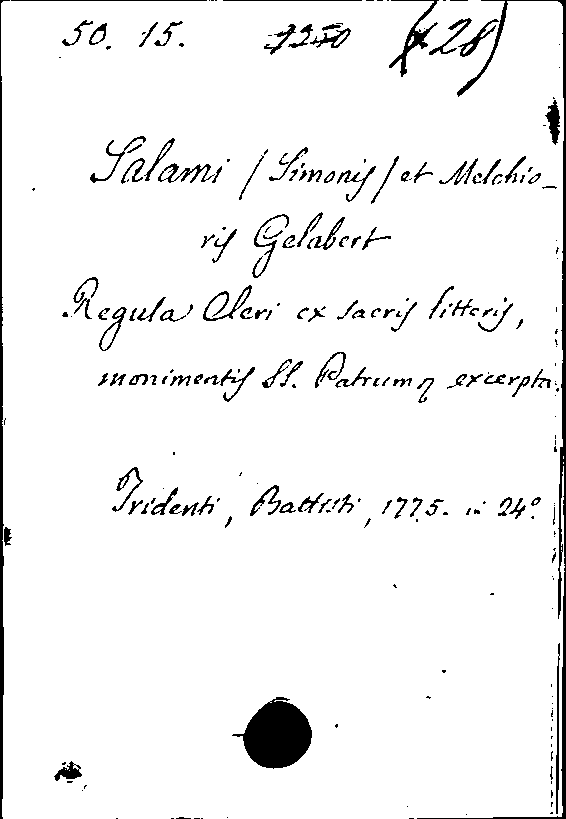 50. 15. 7250 (x28)
Salami / Simonis / et Melchio-
ris Gelabert
Regula Cleri ex sacris litteris,
monimentis SS. Patrum excerpta.
Tridenti, Battisti, 1775. in 24°.